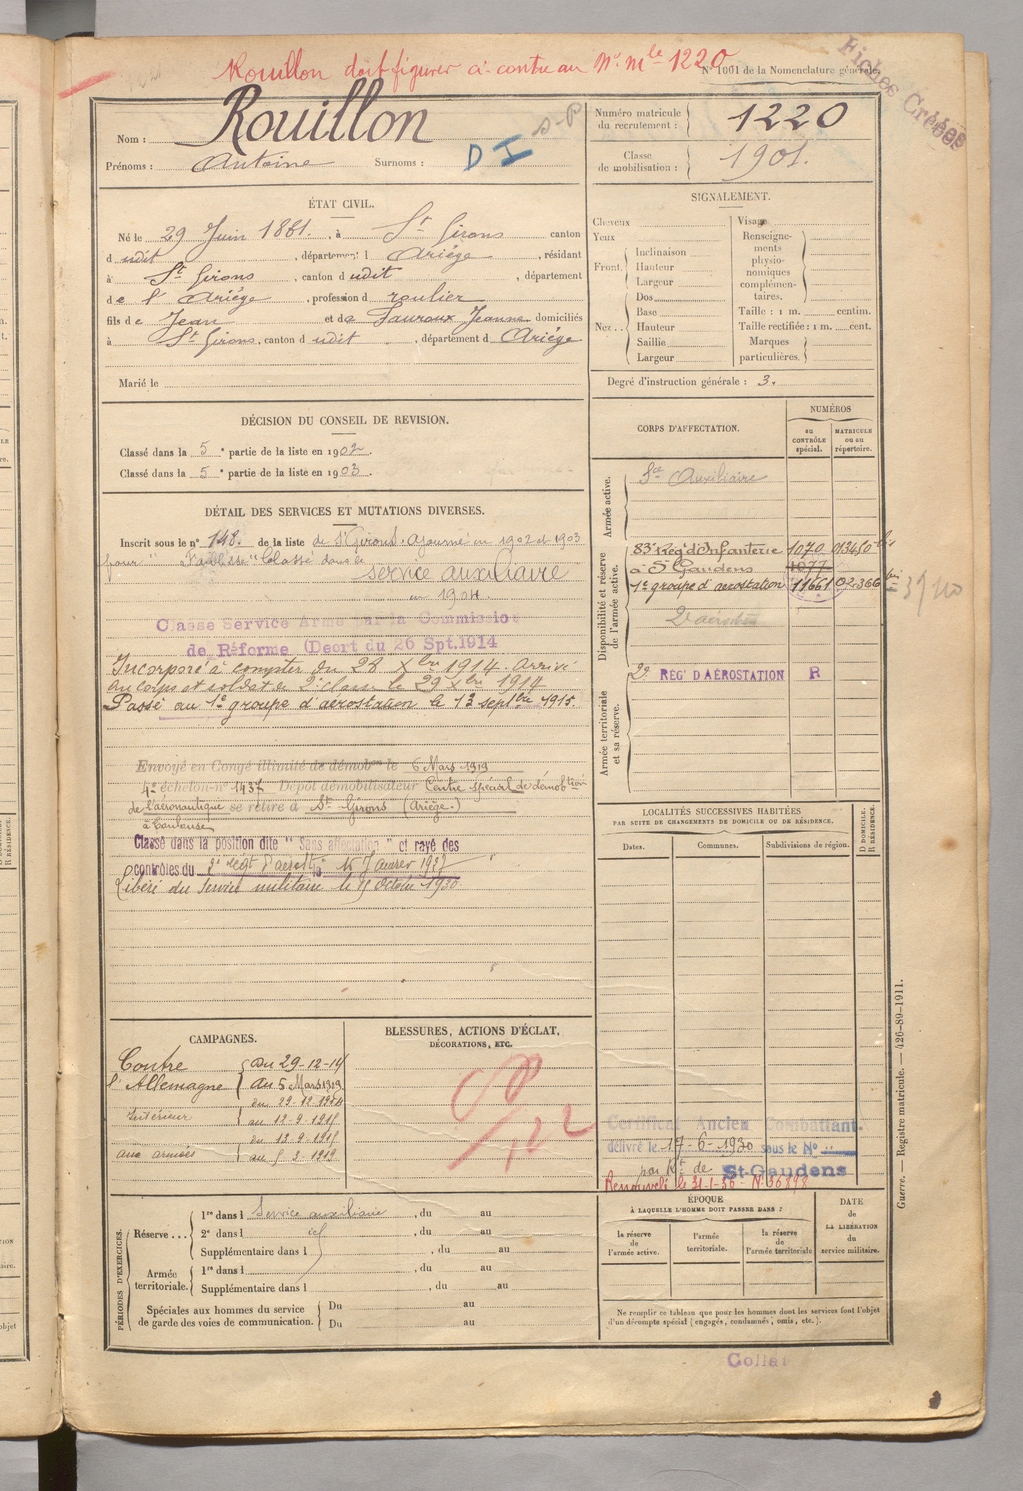 Rouillon doit figurer ci-contre au Nº mle 1220
Nº 1001 de la Nomenclature générale.
Fiches Créées
Nom : Rouillon
S-P
Prénoms : Antoine Surnoms :
D I
Numéro matricule du recrutement : 1220
Classe de mobilisation : 1901.
ÉTAT CIVIL.
Né le 29 Juin 1881, à St Girons canton
d udit, département d Ariège, résidant
à St Girons, canton d udit, département
de l'Ariège, profession d roulier
fils de Jean et de Fauroux Jeanne domiciliés
à St Girons, canton d udit, département d Ariège
Marié le
SIGNALEMENT.
Cheveux
Yeux
Front. Inclinaison
Hauteur
Largeur
Nez.. Dos
Base
Hauteur
Saillie
Largeur
Visage
Renseignements physionomiques complémentaires.
Taille : 1 m. centim.
Taille rectifiée : 1 m. cent.
Marques particulières.
Degré d'instruction générale : 3.
DÉCISION DU CONSEIL DE REVISION.
Classé dans la 5e partie de la liste en 1902.
Classé dans la 5e partie de la liste en 1903.
DÉTAIL DES SERVICES ET MUTATIONS DIVERSES.
Inscrit sous le nº 148. de la liste de St Girons. Ajourné en 1902 et 1903
pour "Faiblesse" Classé dans le
service auxiliaire
en 1904.
Classe Service Armé par la Commission
de Réforme (Decrt du 26 Spt. 1914
Incorporé à compter du 28 Xbre 1914. Arrivé
au corps et soldat de 2e classe le 29 Xbre 1914
Passé au 1er groupe d'aérostation le 12 septbre 1915.
Envoyé en Congé illimité de démobon le 6 Mars 1919
4e échelon nº 1437 Dépot démobilisateur Centre spécial de démobtion
de l'aéronautique se retire à St Girons (Ariège.)
à Toulouse
Classé dans la position dite "Sans affectation" et rayé des
contrôles du 2e Régt d'aérostn le Janvier 1927
Libéré du service militaire le octobre 1930.
CORPS D'AFFECTATION.
NUMÉROS
au CONTRÔLE spécial.
MATRICULE ou au répertoire.
Armée active.
Sce Auxiliaire
Disponibilité et réserve de l'armée active.
83e Rég. d'Infanterie 1070 013450 bis
à St Gaudens 1077
1er groupe d'aérostation 11661 02366 bis
2e aérostion
Armée territoriale et sa réserve.
2e RÉGt D'AÉROSTATION R
LOCALITÉS SUCCESSIVES HABITÉES
PAR SUITE DE CHANGEMENTS DE DOMICILE OU DE RÉSIDENCE.
Dates. Communes. Subdivisions de région.
D DOMICILE.
R RÉSIDENCE.
CAMPAGNES.
Contre l'Allemagne
du 29-12-14
au 5 Mars 1919
Intérieur
du 29.12.1914
au 12.9.1915
aux armées
du 13.9.1915
au 5.3.1919
BLESSURES, ACTIONS D'ÉCLAT,
DÉCORATIONS, ETC.
Certificat Ancien Combattant
délivré le 17-6-1930 sous le Nº
par Rt de St-Gaudens
Renouvelé le 31-1-36 - N. 36898
PÉRIODES D'EXERCICES.
Réserve... 1re dans l Service auxiliaire, du au
2e dans l id, du au
Supplémentaire dans l, du au
Armée territoriale. 1re dans l, du au
Supplémentaire dans l, du au
Spéciales aux hommes du service de garde des voies de communication. Du au
Du au
ÉPOQUE
À LAQUELLE L'HOMME DOIT PASSER DANS :
la réserve de l'armée active.
l'armée territoriale.
la réserve de l'armée territoriale
DATE DE LA LIBÉRATION du service militaire.
Ne remplir ce tableau que pour les hommes dont les services font l'objet
d'un décompte spécial (engagés, condamnés, omis, etc.).
Guerre. — Registre matricule. — 426-89-1911.